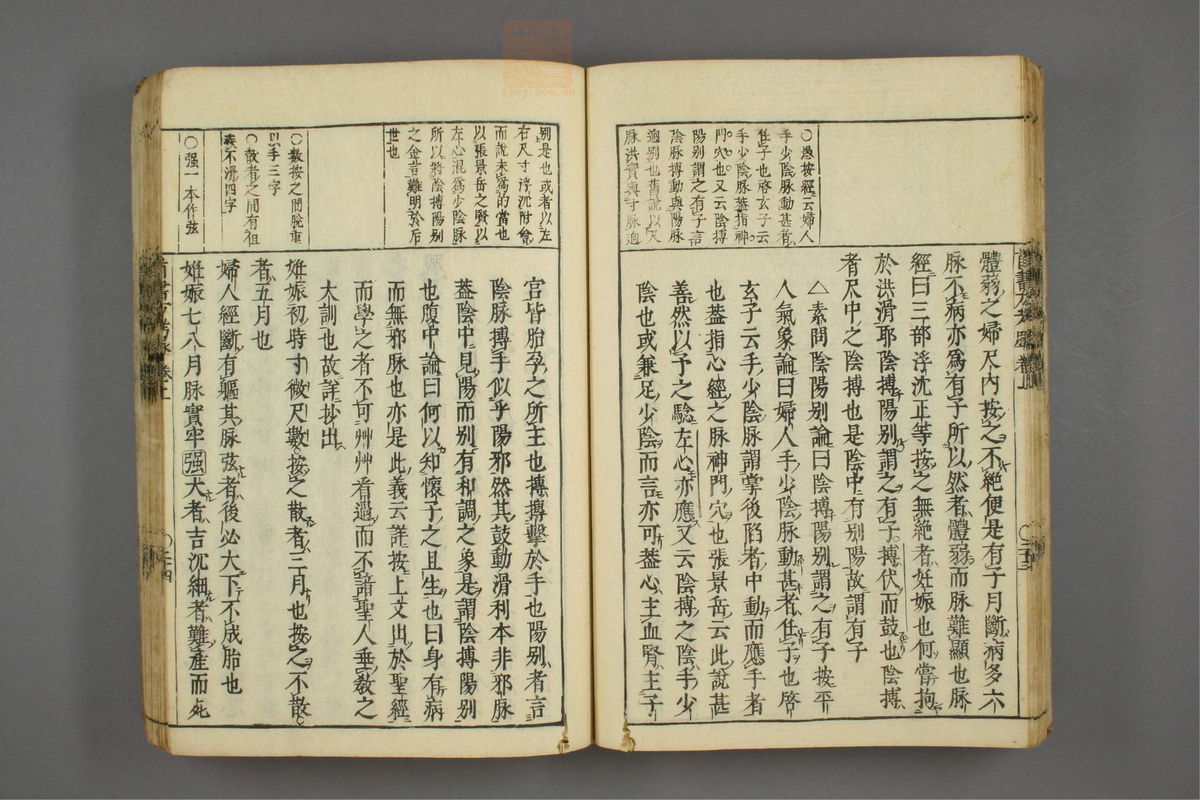 ○愚按經云婦人
手少陰脉動甚者
任子也啓玄子云
手少陰脉葢指神
門穴也又云陰搏
陽別謂之有子言
陰脉搏動與陽脉
逈別也舊說以尺
脉洪實與寸脉逈
體弱之婦尺內按之不絕便是有子月斷病多六
脉不病亦爲有子所以然者體弱而脉難顯也脉
經曰三部浮沈正等按之無絕者妊娠也何當拘
於洪滑耶陰搏陽別謂之有子搏伏而鼓也陰搏
者尺中之陰搏也是陰中有別陽故謂有子
△素問陰陽別論曰陰搏陽別謂之有子按平
人氣象論曰婦人手少陰脉動甚者任子也啓
玄子云手少陰脉謂掌後陷者中動而應手者
也葢指心經之脉神門穴也張景岳云此說甚
善然以予之驗左心亦應又云陰搏之陰手少
陰也或兼足少陰而言亦可葢心主血腎主子
別是也或者以左
右尺寸浮沉附會
而說未爲的當也
以張景岳之賢以
左心混爲少陰脉
所以將陰搏陽別
之金言難明於后
世也
○數按之間脫重
以手三字
○散者之間有但
疾不滑四字
○强一本作弦
宮皆胎孕之所主也搏搏擊於手也陽別者言
陰脉搏手似乎陽邪然其鼓動滑利本非邪脉
葢陰中見陽而別有和調之象是謂陰搏陽別
也腹中論曰何以知懷子之且生也曰身有病
而無邪脉也亦是此義云詳按上文出於聖經
而學之者不可艸艸看過而不諳聖人垂敎之
大訓也故詳抄出
妊娠初時寸微尺數按之散者三月也按之不散
者五月也
婦人經斷有軀其脉弦者後必大下不成胎也
妊娠七八月脉實牢强大者吉沉細者難產而死